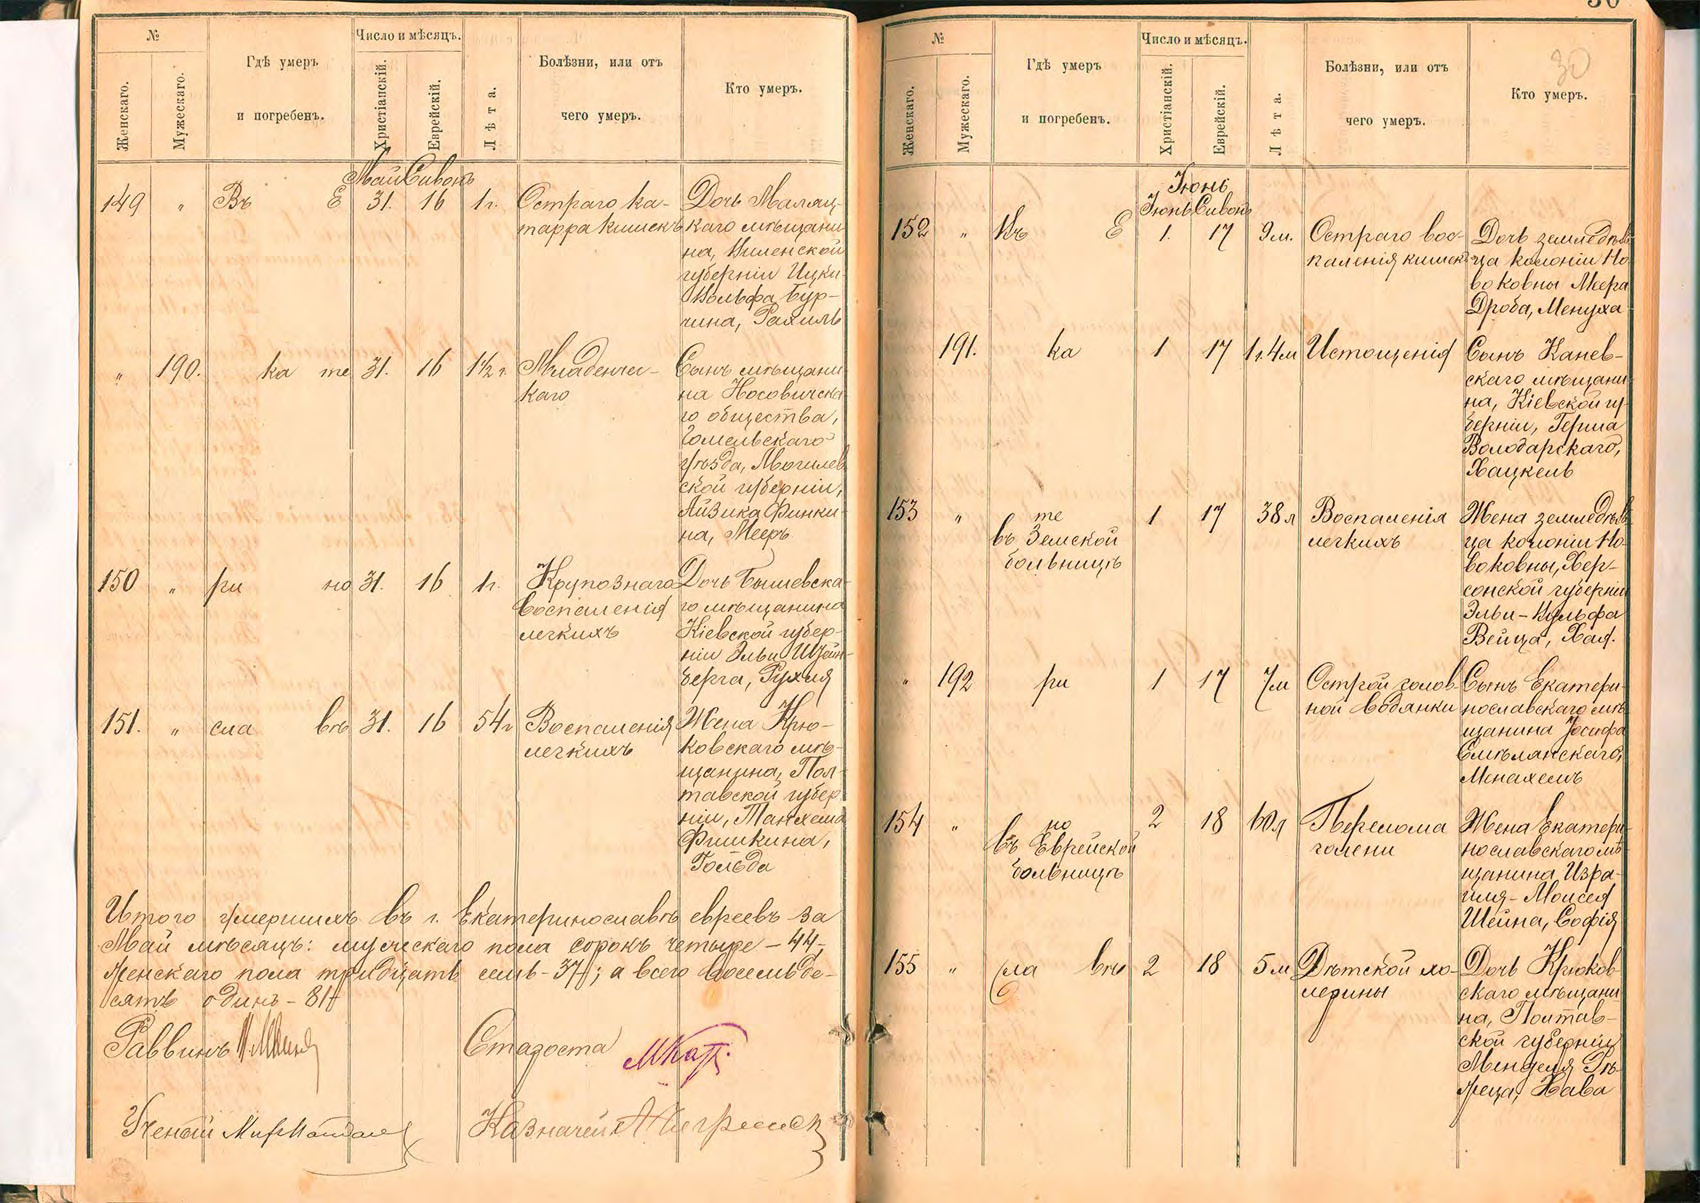 №
Женскаго.
Мужескаго.
Гдѣ умеръ
и погребенъ.
Число и мѣсяцъ.
Христіанскій.
Еврейскій.
Лѣта.
Болѣзни, или отъ
чего умеръ.
Кто умеръ.
Май Сивонъ
149 „ Въ Е 31. 16 1 г.
Остраго ка-
тарра кишекъ
Дочь
каго мѣщани
на, Виленской
губерніи Ицки
Вольфа Бур-
чина, Рахиль
„ 190. ка те 31. 16 1½ г.
Младенче-
скаго
Сынъ мѣщани
на Носовичска
го общества,
Гомельскаго
уѣзда, Могилев
ской губерніи,
Айзика Финки-
на, Мееръ
150 „ ри но 31. 16 1 г.
Крупознаго
воспаленія
легкихъ
Дочь Бышевска-
го мѣщанина
Кіевской губер-
ніи Эльи Штейн-
берга, Рухля
151. „ сла вѣ 31. 16 54 г
Воспаленія
легкихъ
Жена Крю-
ковскаго мѣ-
щанина, Пол-
тавской губер
ніи,
Фишкина,
Гольда
Итого умершихъ въ г. Екатеринославѣ евреевъ за
Май мѣсяцъ: мужескаго пола сорокъ четыре – 44,
женскаго пола тридцать семь – 37; а всего восемьде-
сятъ одинъ – 81
Раввинъ
Староста
Ученый
Казначей
30
№
Женскаго.
Мужескаго.
Гдѣ умеръ
и погребенъ.
Число и мѣсяцъ.
Христіанскій.
Еврейскій.
Лѣта.
Болѣзни, или отъ
чего умеръ.
30
Кто умеръ.
Іюнь
Іюнь Сивонъ
152 „ Въ Е 1. 17 9 м.
Остраго вос-
паленія кишек
Дочь земледѣль
ца колоніи Но
воковны Меера
Дроба, Менуха
191. ка 1 17 1 г. 4 м
Истощенія
Сынъ Канев-
скаго мѣщани-
на, Кіевской гу-
берніи, Герша
Володарскаго,
Хацкель
153 „ те 1 17 38 л
въ Земской
больницѣ
Воспаленія
легкихъ
Жена земледѣль
ца колоніи Но-
воковны, Хер-
сонской губерніи
Эльи-Вульфа
Вейца, Хая.
„ 192 ри 1 17 7 м
Острой голов
ной водянки
Сынъ Екатери-
нославскаго мѣ
щанина Іосифа
Смѣлянскаго,
Менахемъ
154 „ но 2 18 60 л
въ Еврейской
больницѣ
Перелома
голени
Жена Екатери-
нославскаго мѣ-
щанина Изра-
иля-Моисея
Шейна, Софія
155 „ сла вѣ 2 18 5 м
Дѣтской хо-
лерины
Дочь Крюков
скаго мѣщани
на, Полтав-
ской губерніи
Менделя
Хава